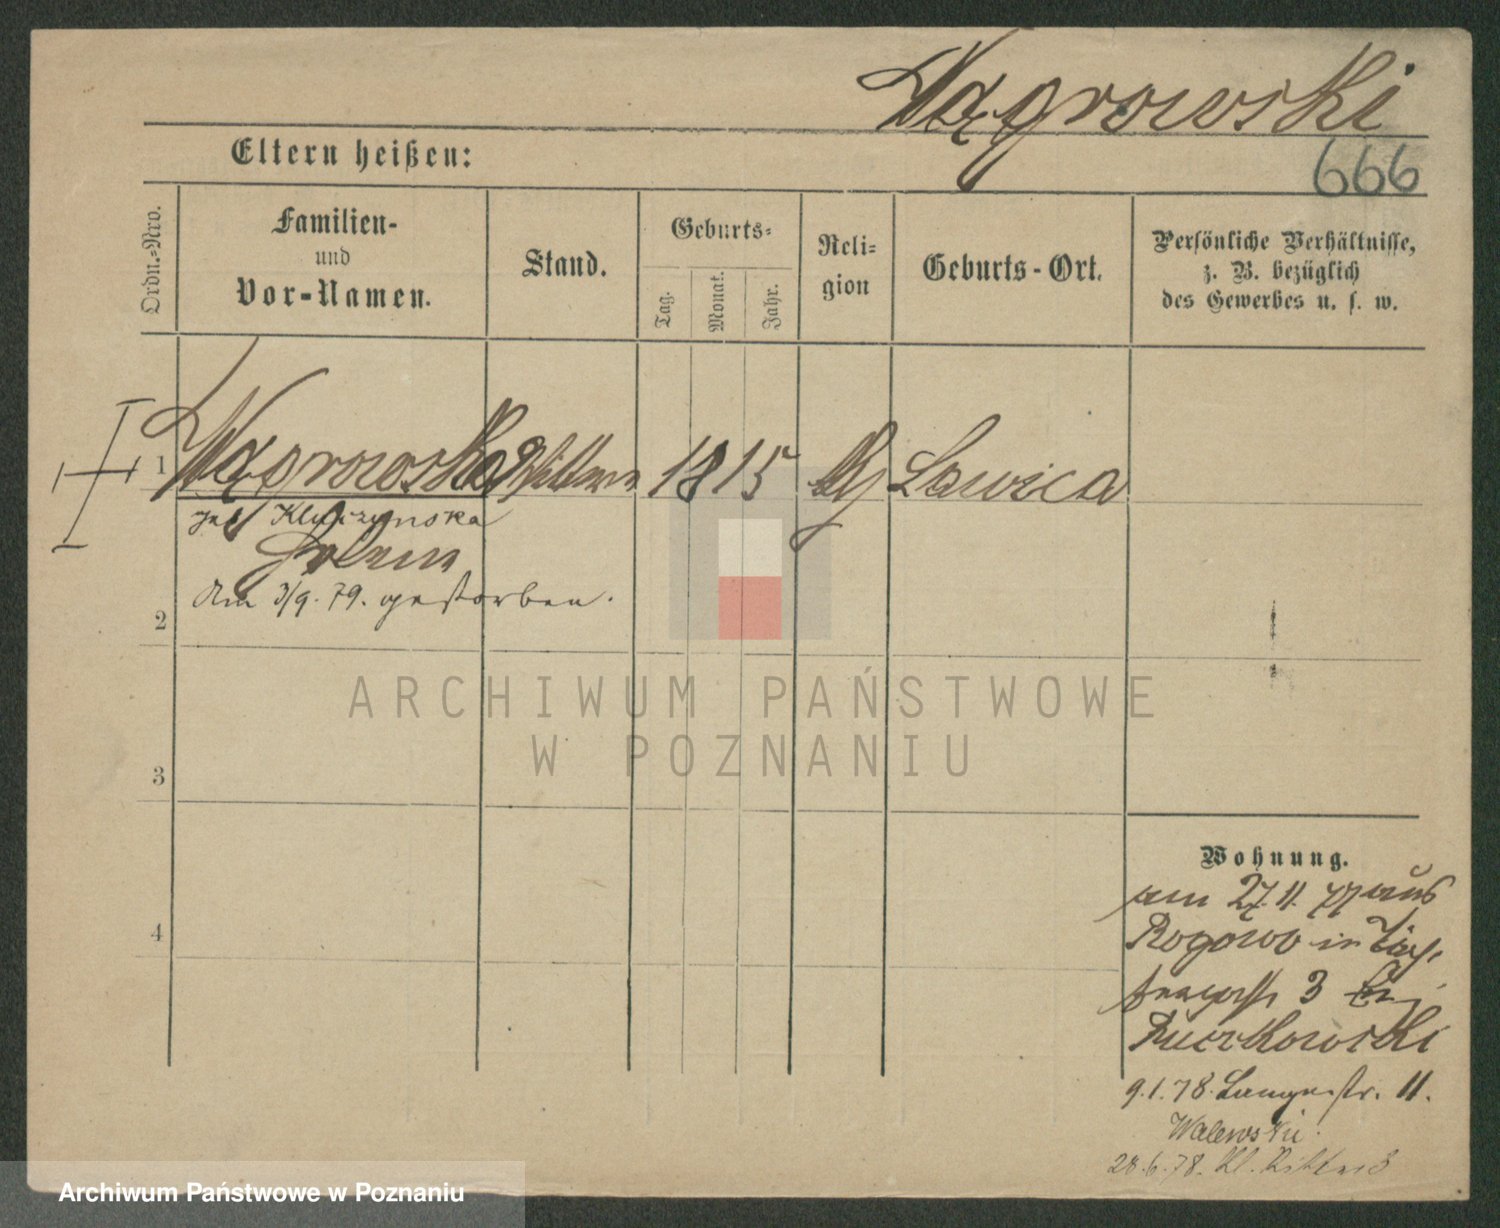 Wągrowski
Eltern heißen:
666
Ordn.-Nro.
Familien-
und
Vor-Namen.
Stand.
Geburts-
Tag.
Monat.
Jahr.
Reli-
gion
Geburts-Ort.
Persönliche Verhältnisse,
z. B. bezüglich
des Gewerbes u. s. w.
1
Wągrowska Wittwe 1815 Ławica
geb Kluczynska
am 3/9. 79. gestorben.
2
ARCHIWUM PAŃSTWOWE
W POZNANIU
3
4
Wohnung.
am 27.11. 77 aus
Rogowo in
3 bei
9.1.78. Langestr. 11.
Walewski.
28.6.78. Kl. Ritter 3
Archiwum Państwowe w Poznaniu